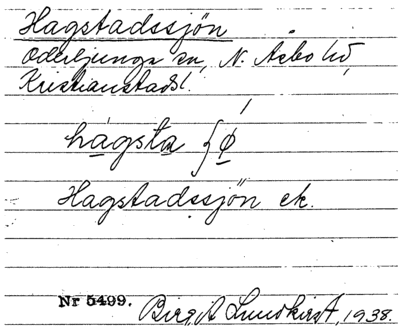 Hagstadssjön
Oderljunga sn, N. Åsbo hd,
Kristianstads l.
hagsta ʃø
Hagstadssjön ek.
Nr 5499. Birgit Lundkvist, 1938.